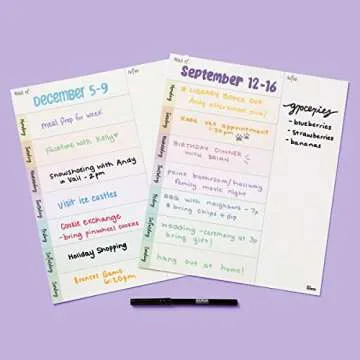 Week of:
Notes:
DECEMBER 5-9
Monday
meal prep for week
Tuesday
Facetime with Kelly
Wednesday
Snowshoeing with Andy
@ Vail - 2pm
Thursday
Visit ice castles
Friday
Cookie exchange
- bring pinwheel cookies
Saturday
Holiday Shopping
Sunday
Broncos Game
6:20pm
Week of:
Notes:
SEPTEMBER 12-16
Monday
* LIBRARY BOOKS DUE
Andy afternoon out!
Tuesday
vet appointment
- 1:30pm
Wednesday
BIRTHDAY DINNER
WITH BRIAN
Thursday
Paint bathroom/hallway
family movie night
Friday
BBQ with neighbors - 7p
* bring chips + dip
Saturday
wedding - ceremony at 3p
bring gift!
Sunday
hang out at home!
groceries
- blueberries
- strawberries
- bananas